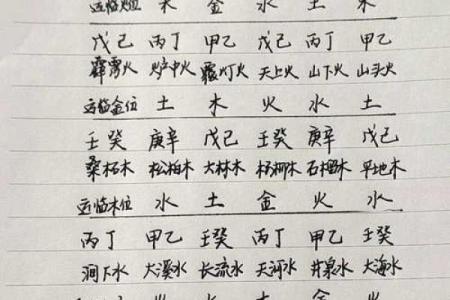 运临火位 木 金 水 土 木
戊己 丙丁 甲乙 戊己 丙丁 甲乙
霹雳火 炉中火 覆灯火 天上火 山下火 山头火
运临金位 土 木 火 水 土
壬癸 庚辛 戊己 壬癸 庚辛 戊己
桑柘木 松柏木 大林木 杨柳木 石榴木 平地木
运临木位 水 土 金 火 水
丙丁 甲乙 壬癸 丙丁 甲乙 壬癸
涧下水 大溪水 长流水 天河水 井泉水 大海水